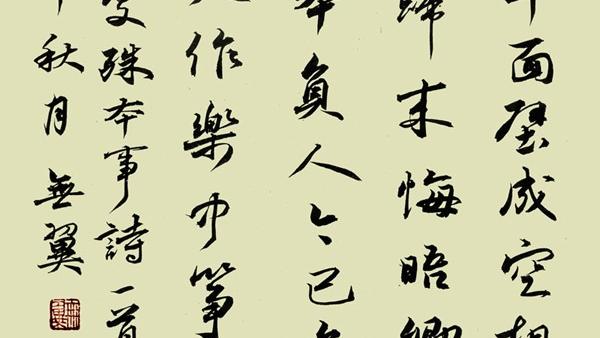 年面壁成空相
歸来悔晤卿
本負人今已矣
人作樂中筝
曼殊本事詩一首
秋月無翼